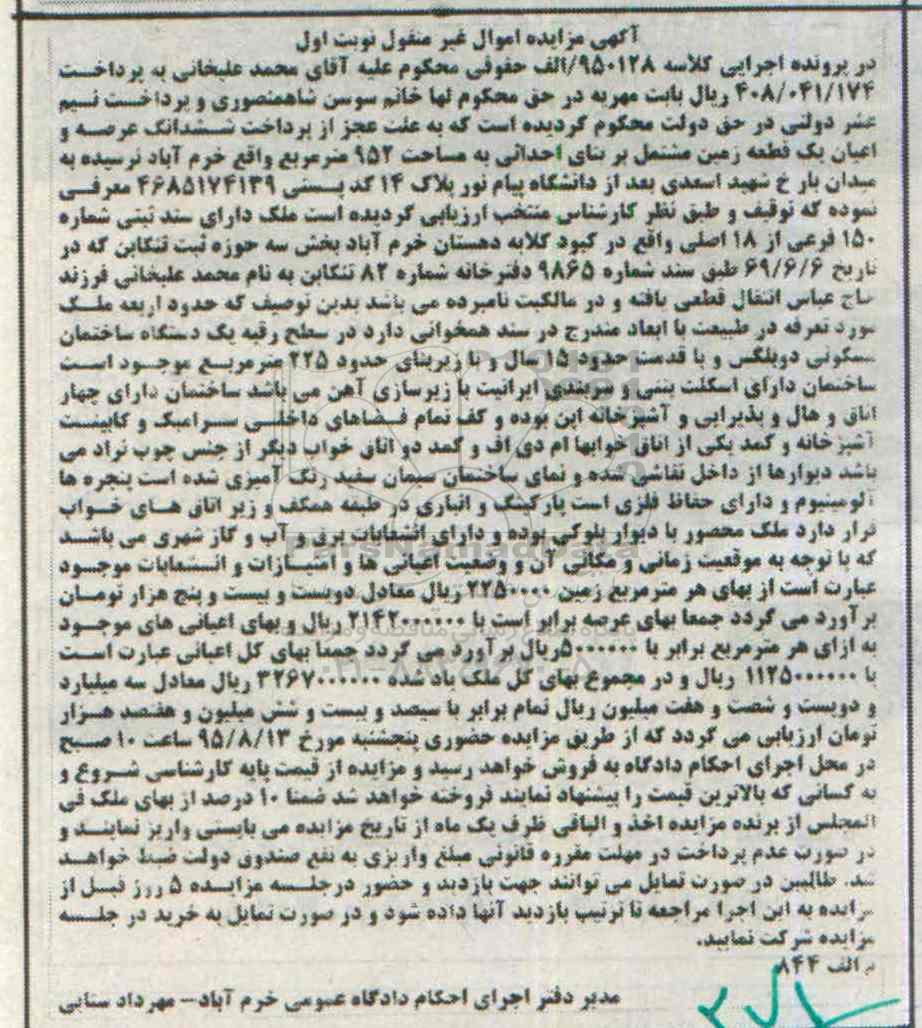 آگهی مزایده اموال غیر منقول نوبت اول
در پرونده اجرایی کلاسه ۹۵۰۱۲۸/الف حقوقی محکوم علیه آقای محمد علیخانی به پرداخت
۴۰۸/۰۴۱/۱۷۴ ریال بابت مهریه در حق محکوم لها خانم سوسن شاهمنصوری و پرداخت نیم
عشر دولتی در حق دولت محکوم گردیده است که به علت عجز از پرداخت ششدانگ عرصه و
اعیان یک قطعه زمین مشتمل بر بنای احداثی به مساحت ۹۵۲ مترمربع واقع خرم آباد نرسیده به
میدان بار خ شهید اسعدی بعد از دانشگاه پیام نور پلاک ۱۴ کد پستی ۴۶۸۵۱۷۴۱۳۹ معرفی
نموده که توقیف و طبق نظر کارشناس منتخب ارزیابی گردیده است ملک دارای سند ثبتی شماره
۱۵۰ فرعی از ۱۸ اصلی واقع در کبود کلایه دهستان خرم آباد بخش سه حوزه ثبت تنکابن که در
تاریخ ۶۹/۶/۶ طبق سند شماره ۹۸۶۵ دفترخانه شماره ۸۲ تنکابن به نام محمد علیخانی فرزند
حاج عباس انتقال قطعی یافته و در مالکیت نامبرده می باشد بدین توصیف که حدود اربعه ملک
مورد تعرفه در طبیعت با ابعاد مندرج در سند همخوانی دارد در سطح رقبه یک دستگاه ساختمان
مسکونی دوبلکس و با قدمت حدود ۱۵ سال و با زیربنای حدود ۲۲۵ مترمربع موجود است
ساختمان دارای اسکلت بتنی و سربندی ایرانیت با زیرسازی آهن می باشد ساختمان دارای چهار
اتاق و هال و پذیرایی و آشپزخانه اپن بوده و کف تمام فضاهای داخلی سرامیک و کابینت
آشپزخانه و کمد یکی از اتاق خوابها ام دی اف و کمد دو اتاق خواب دیگر از جنس چوب نراد می
باشد دیوارها از داخل نقاشی شده و نمای ساختمان سیمان سفید رنگ آمیزی شده است پنجره ها
آلومینیوم و دارای حفاظ فلزی است پارکینگ و انباری در طبقه همکف و زیر اتاق های خواب
قرار دارد ملک محصور با دیوار بلوکی بوده و دارای انشعابات برق و آب و گاز شهری می باشد
که با توجه به موقعیت زمانی و مکانی آن و وضعیت اعیانی ها و امتیازات و انشعابات موجود
عبارت است از بهای هر مترمربع زمین ۲۲۵۰۰۰۰ ریال معادل دویست و بیست و پنج هزار تومان
برآورد می گردد جمعا بهای عرصه برابر است با ۲۱۴۲۰۰۰۰۰۰ ریال و بهای اعیانی های موجود
به ازای هر مترمربع برابر با ۵۰۰۰۰۰۰ریال برآورد می گردد جمعا بهای کل اعیانی عبارت است
با ۱۱۲۵۰۰۰۰۰۰ ریال و در مجموع بهای کل ملک یاد شده ۳۲۶۷۰۰۰۰۰۰ ریال معادل سه میلیارد
و دویست و شصت و هفت میلیون ریال تمام برابر با سیصد و بیست و شش میلیون و هفتصد هزار
تومان ارزیابی می گردد که از طریق مزایده حضوری پنجشنبه مورخ ۹۵/۸/۱۳ ساعت ۱۰ صبح
در محل اجرای احکام دادگاه به فروش خواهد رسید و مزایده از قیمت پایه کارشناسی شروع و
به کسانی که بالاترین قیمت را پیشنهاد نمایند فروخته خواهد شد ضمنا ۱۰ درصد از بهای ملک فی
المجلس از برنده مزایده اخذ و الباقی ظرف یک ماه از تاریخ مزایده می بایستی واریز نمایند و
در صورت عدم پرداخت در مهلت مقرره قانونی مبلغ واریزی به نفع صندوق دولت ضبط خواهد
شد. طالبین در صورت تمایل می توانند جهت بازدید و حضور درجلسه مزایده ۵ روز قبل از
مزایده به این اجرا مراجعه تا ترتیب بازدید آنها داده شود و در صورت تمایل به خرید در جلسه
مزایده شرکت نمایند.
م الف ۸۴۴
مدیر دفتر اجرای احکام دادگاه عمومی خرم آباد – مهرداد سنایی
ParsNamadData